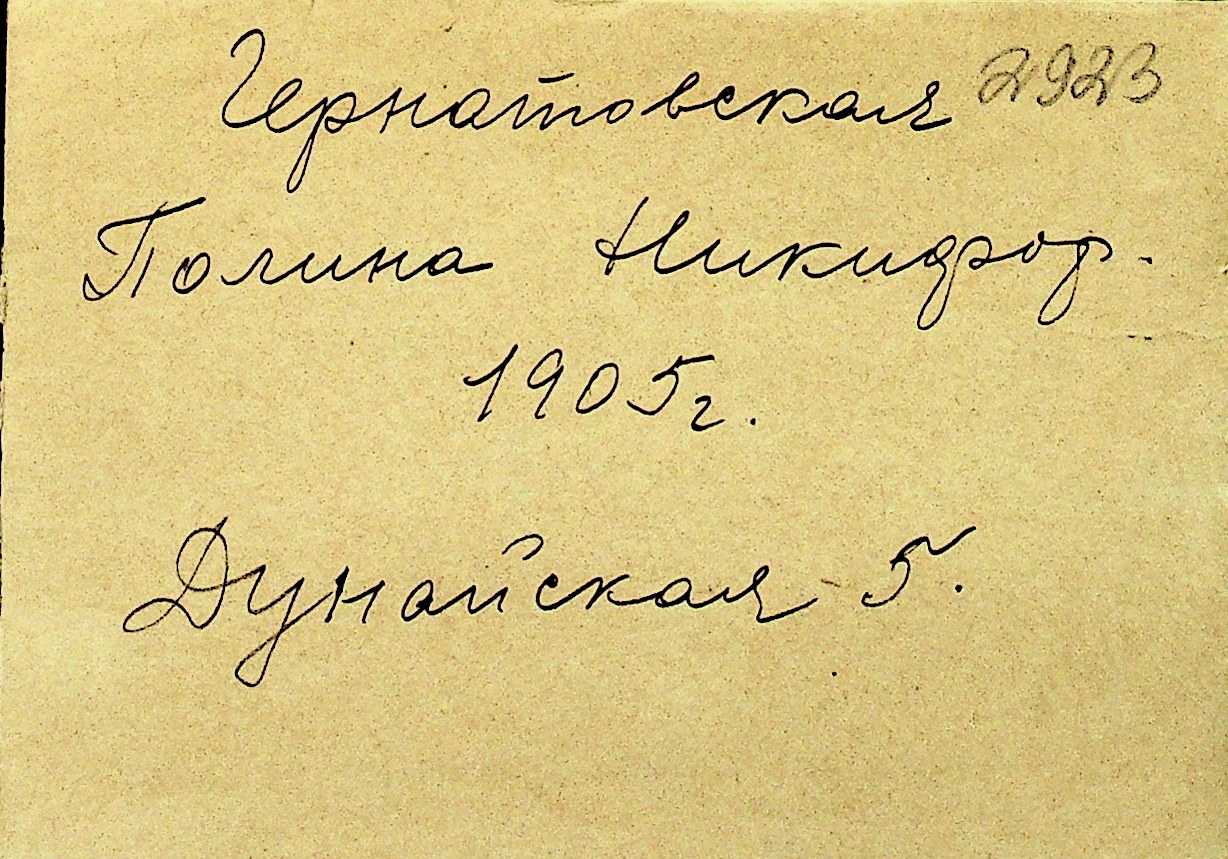 Чернатовская 2923
Полина Никифор.
1905г.
Дунайская 5.